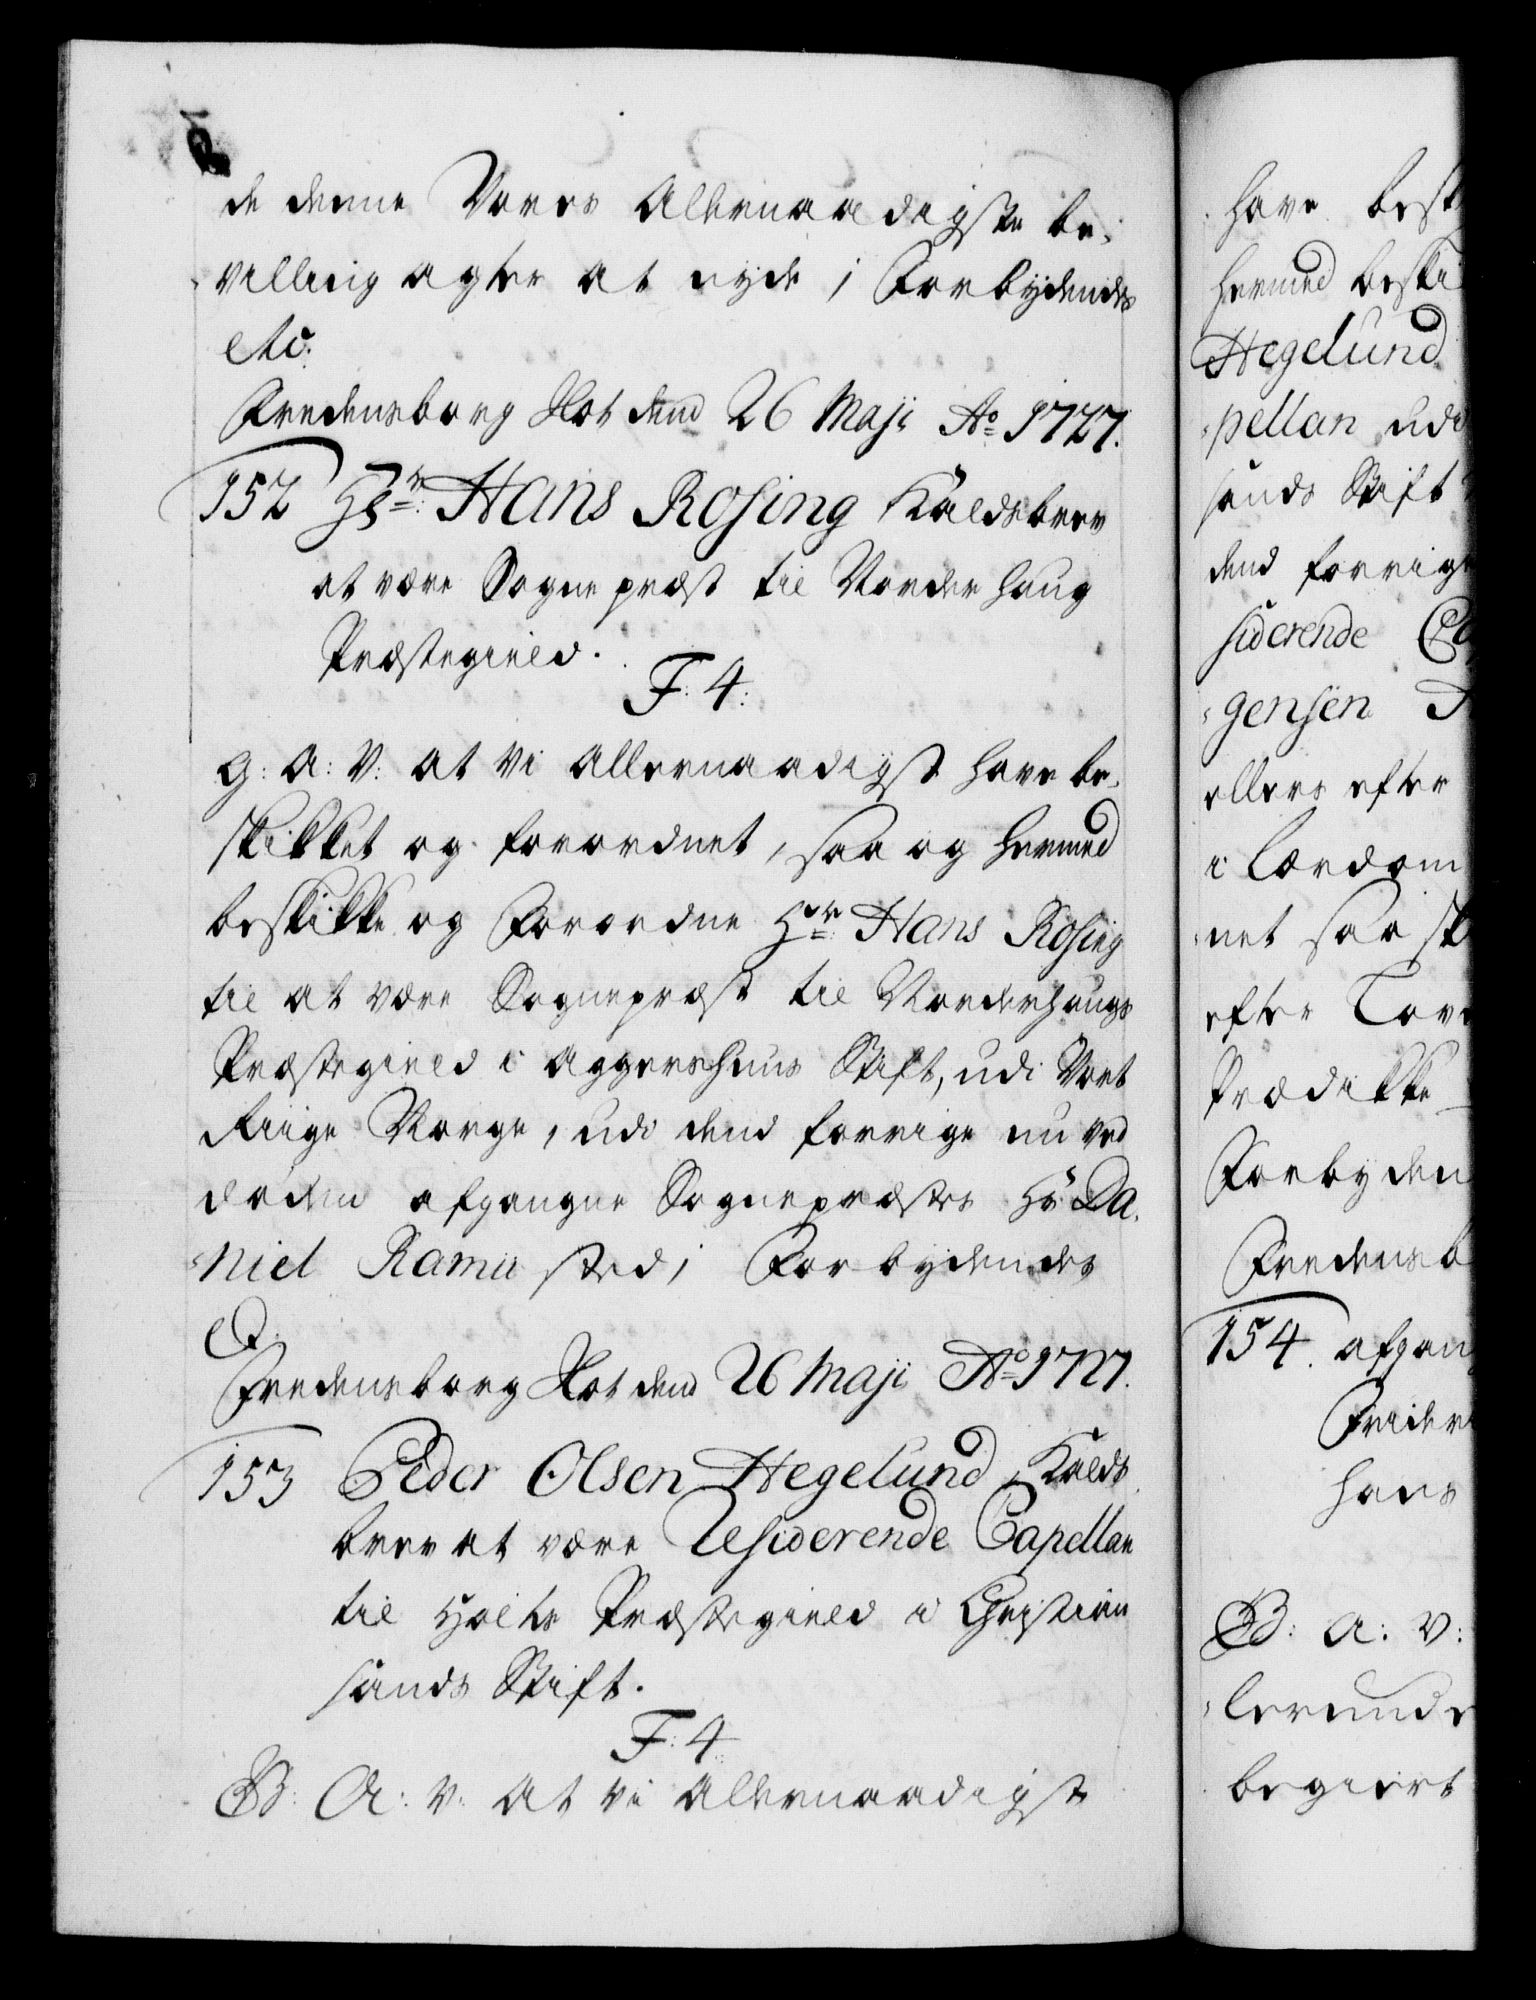 de denne Vores Allernaadigste be-
villing agter at nyde, Forbydendes
etc:
Fredensborg Slot dend 26 Maji Ao 1727.
152 Hr: Hans Rosing Kaldsbrev
at være Sogne præst til Norderhaug
Præstegield.
F: 4:
G: A: V: at Vi Allernaadigst have be-
skikket og forordnet, saa og hermed
beskikke og Forordne Hr: Hans Rosing
til at være Sognepræst til Norderhaugs
Præstegield i Aggershuus Stift, udi Vort
Riige Norge, udi dend forrige nu ved
døden afgangne Sognepræstes Hr. Da-
niel Ramus sted, Forbydendes
etc.
Fredensborg Slot dend 26 Maji Ao 1727.
153 Peder Olsen Hegelund Kalds
brev at være Residerende Capellan
til Holts Præstegield i Christian
sands Stift.
F: 4.
G: A: V: At vi Allernaadigst
have besk
hermed beski
Hegelund
pellan udi
sands Stift
dend forrige
siderende
gensen
ellers efter
i Lærdom
net saa sk
efter Lov
Prædikke
Forbyden
Fredensb
154. afgan
Frider
hans
G: A: V:
lerunde
begiert